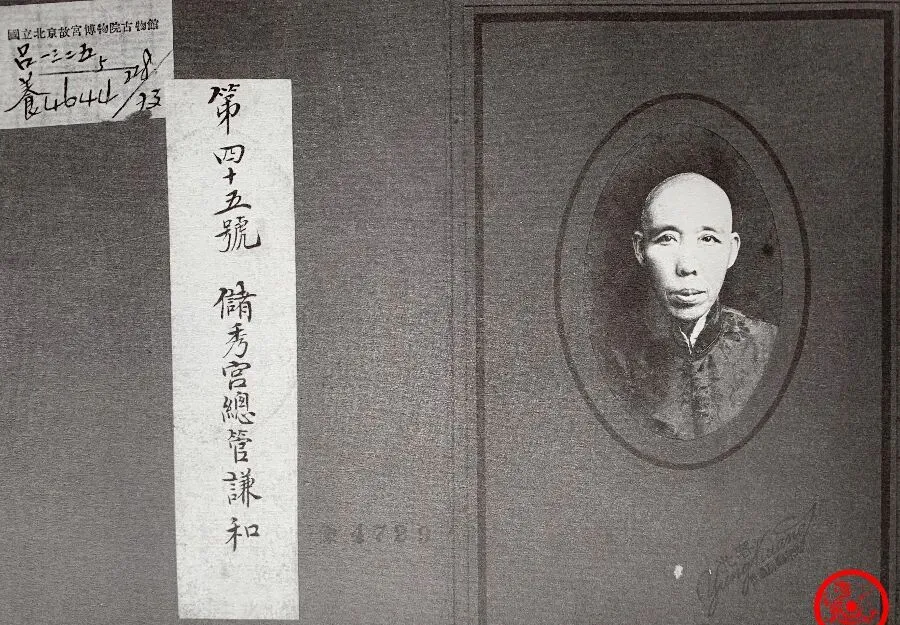 國立北京故宮博物院古物館
呂一三二五
養4644
第四十五號 儲秀宮總管謙和
4729